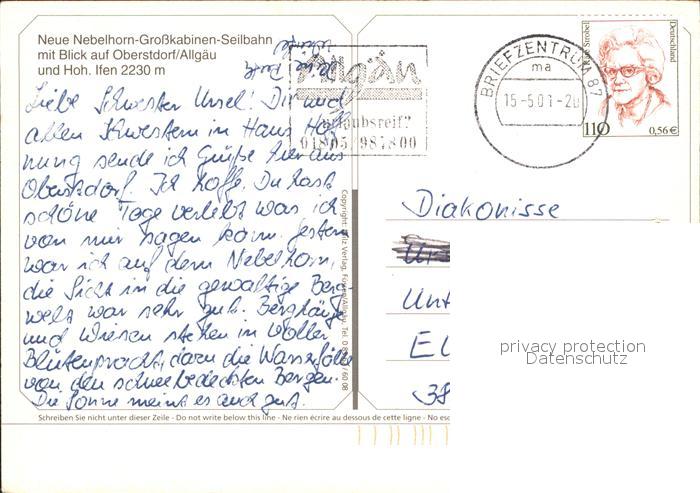 Neue Nebelhorn-Großkabinen-Seilbahn
mit Blick auf Oberstdorf/Allgäu
und Hoh. Ifen 2230 m
Liebe Schwester Ursel! Dir und
allen Schwestern in Haus Hoff
nung sende ich Grüße hier aus
Oberstdorf. Ich hoffe, Du hast
schöne Tage verlebt was ich
von mir sagen kann. Gestern
war ich auf dem Nebelhorn,
die Sicht in die gewaltige Berg-
welt war sehr gut. Berghänge
und Wiesen stehen in voller
Blütenpracht, dazu die Wasserfälle
von den schneebedeckten Bergen.
Die Sonne meint es auch gut.
Schwester
Allgäu
urlaubsreif?
01805/981800
BRIEFZENTRUM 87
ma
15-5.01-20
Deutschland
Strobel
110
0,56€
Diakonisse
Unt
El
38
privacy protection
Datenschutz
Schreiben Sie nicht unter dieser Zeile - Do not write below this line - Ne rien écrire au dessous de cette ligne - No esc